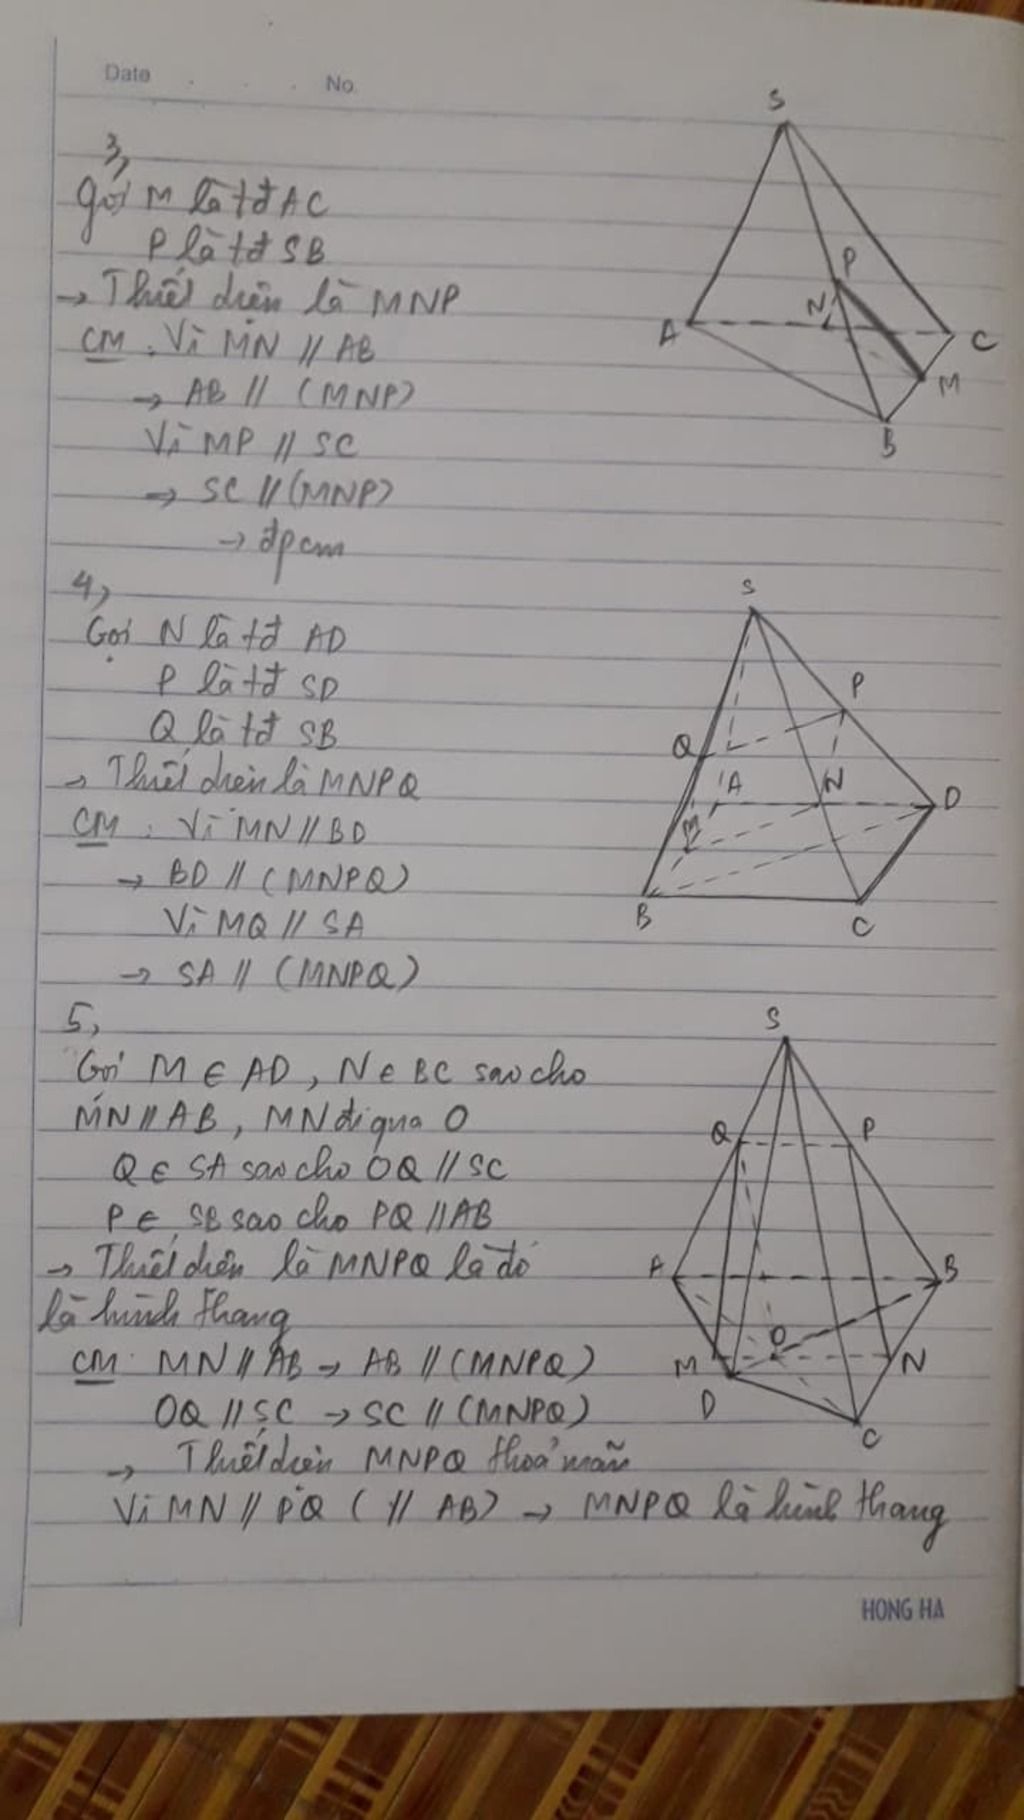 Date . . . No.
3,
Gọi M là tđ AC
P là tđ SB
→ Thiết diện là MNP
CM : Vì MN // AB
→ AB // (MNP)
Vì MP // SC
→ SC // (MNP)
→ đpcm
S
P
N
A
C
M
B
4,
Gọi N là tđ AD
P là tđ SD
Q là tđ SB
→ Thiết diện là MNPQ
CM : Vì MN // BD
→ BD // (MNPQ)
Vì MQ // SA
→ SA // (MNPQ)
S
P
Q
A
N
D
M
B
C
5,
Gọi M ∈ AD, N ∈ BC sao cho
MN // AB, MN đi qua O
Q ∈ SA sao cho OQ // SC
P ∈ SB sao cho PQ // AB
→ Thiết diện là MNPQ là đó
là hình thang
CM : MN // AB → AB // (MNPQ)
OQ // SC → SC // (MNPQ)
→ Thiết diện MNPQ thoả mãn
Vì MN // PQ ( // AB) → MNPQ là hình thang
S
Q
P
A
B
O
M
N
D
C
HONG HA